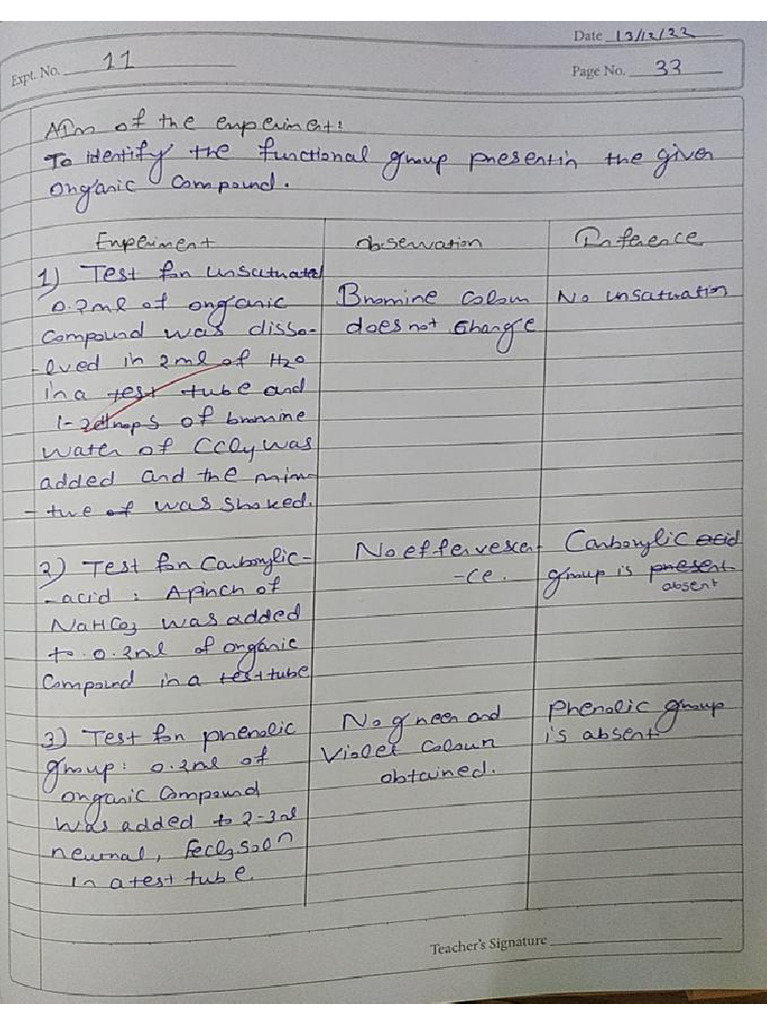 Date 13/12/22
Expt. No. 11
Page No. 33
Aim of the experiment:
To identify the functional group present in the given
organic compound.
Experiment Observation Inference
1) Test for unsaturated
0.2ml of organic
compound was disso-
-lved in 2ml of H2O
in a test tube and
1-2drops of bromine
water of CCl4 was
added and the mix-
-ture of was shaked.
Bromine colour
does not change
No unsaturation
2) Test for Carboxylic-
-acid : A pinch of
NaHCO3 was added
to 0.2ml of organic
compound in a test tube
No effervescen
-ce.
Carboxylic acid
group is present
absent
3) Test for phenolic
group: 0.2ml of
organic compound
was added to 2-3ml
neurnal, FeCl3 soln
in a test tube.
No green and
Violet colour
obtained.
Phenolic group
is absent
Teacher's Signature